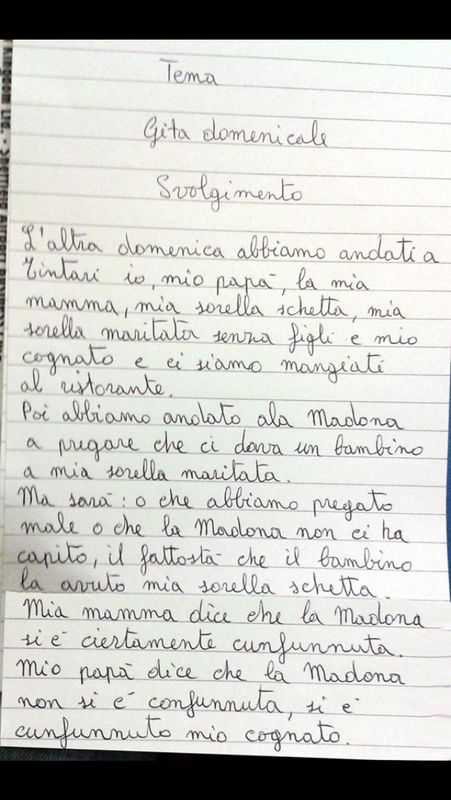 Tema
Gita domenicale
Svolgimento
L'altra domenica abbiamo andati a
Tintari io, mio papà, la mia
mamma, mia sorella schetta, mia
sorella maritata senza figli e mio
cognato e ci siamo mangiati
al ristorante.
Poi abbiamo andato ala Madona
a pregare che ci dava un bambino
a mia sorella maritata.
Ma sarà: o che abbiamo pregato
male o che la Madona non ci ha
capito, il fattostà che il bambino
la avuto mia sorella schetta.
Mia mamma dice che la Madona
si è ciertamente cunfunnuta.
Mio papà dice che la Madona
non si è confunnuta, si è
cunfunnuto mio cognato.